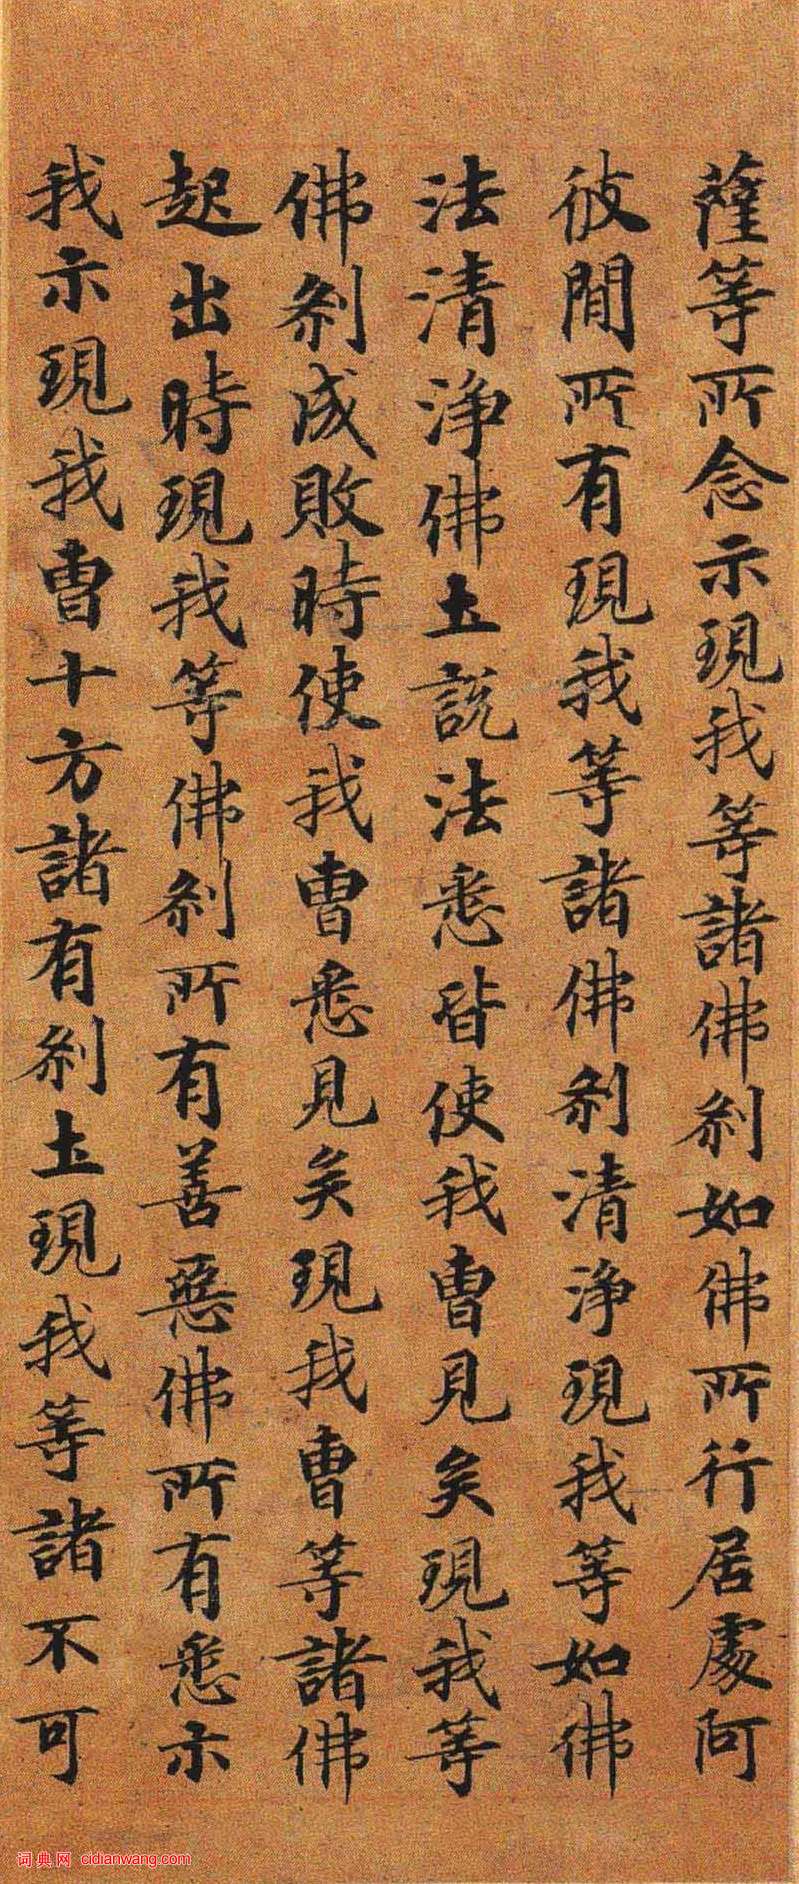 薩等所念示現我等諸佛刹如佛所行居處何
彼間所有現我等諸佛刹清淨現我等如佛
法清淨佛土説法悉皆使我曹見矣現我等
佛刹成敗時使我曹悉見矣現我曹等諸佛
起出時現我等佛刹所有善惡佛所有悉示
我示現我曹十方諸有刹土現我等諸不可
词典网 cidianwang.com